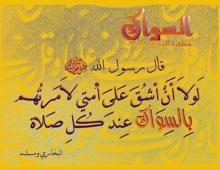 السواك
قال رسول الله ﷺ
لولا أن أشق على أمتي لأمرتهم
بالسواك عند كل صلاة
البخاري ومسلم